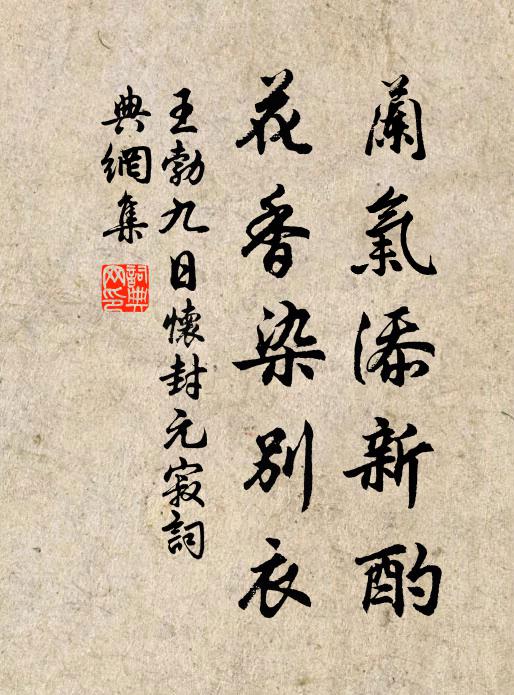 蘭氣添新酌
花香染別衣
王勃九日懷封元寂詞
典網集
詞典網印